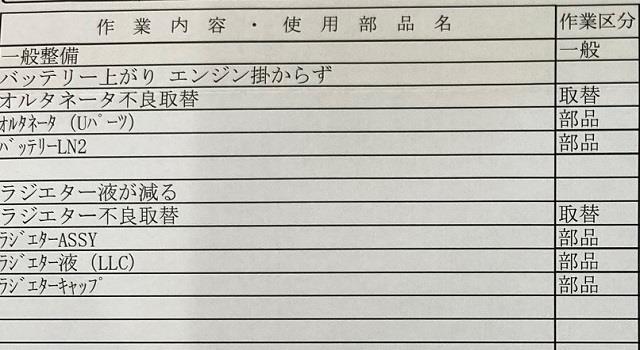 作業内容・使用部品名 作業区分
一般整備 一般
バッテリー上がり エンジン掛からず
オルタネータ不良取替 取替
ｵﾙﾀﾈｰﾀ (Uﾊﾟｰﾂ) 部品
ﾊﾞｯﾃﾘｰLN2 部品
ラジエター液が減る
ラジエター不良取替 取替
ﾗｼﾞｴﾀｰASSY 部品
ﾗｼﾞｴﾀｰ液 (LLC) 部品
ﾗｼﾞｴﾀｰｷｬｯﾌﾟ 部品